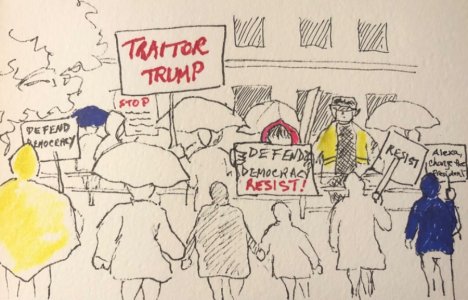 TRAITOR
TRUMP
STOP
DEFEND
DEMOCRACY
DEFEND
DEMOCRACY
RESIST!
RESIST
Alexa,
Change the
President